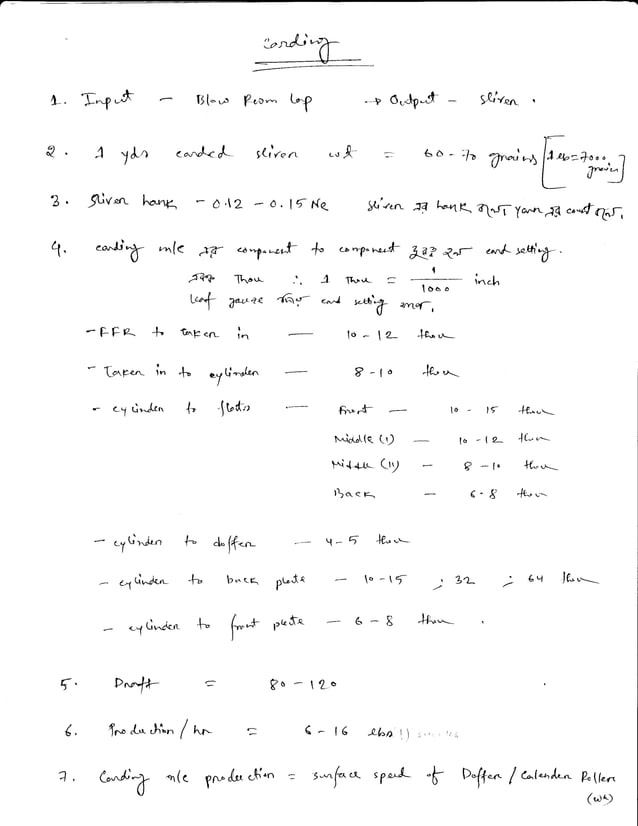 Carding
1. Input – Blow Room lap → Output – sliver.
2. 1 yds carded sliver wt = 60-70 grains [1 lb = 7000 grain]
3. Sliver hank – 0.12 – 0.15 Ne sliver এর hank বলে, yarn এর count বলে,
4. carding m/c এর component to component দূরত্ব হল card setting.
একক Thou ∴ 1 Thou = 1/1000 inch
Leaf gauge card setting
– FFR to taker in — 10 – 12 thou
– Taker in to cylinder — 8 – 10 thou
– cylinder to flats — Front — 10 - 15 thou
Middle (I) — 10 – 12 thou
Middle (II) – 8 – 10 thou
Back – 6 - 8 thou
– cylinder to doffer — 4 – 5 thou
– cylinder to back plate – 10 – 15 ; 32 ; 64 thou
– cylinder to front plate – 6 – 8 thou.
5. Draft = 80 – 120
6. Production/hr = 6 – 16 lbs
7. Carding m/c production = surface speed of Doffer / Calender Roller